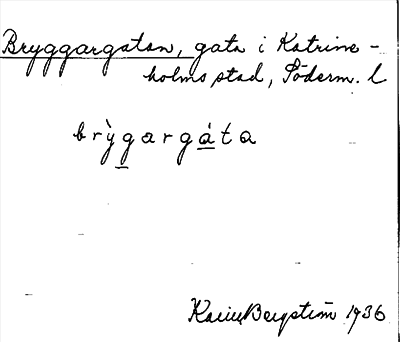 Bryggargatan, gata i Katrine-
holms stad, Söderm. l
brỳgargáta
Karin Bergström 1936